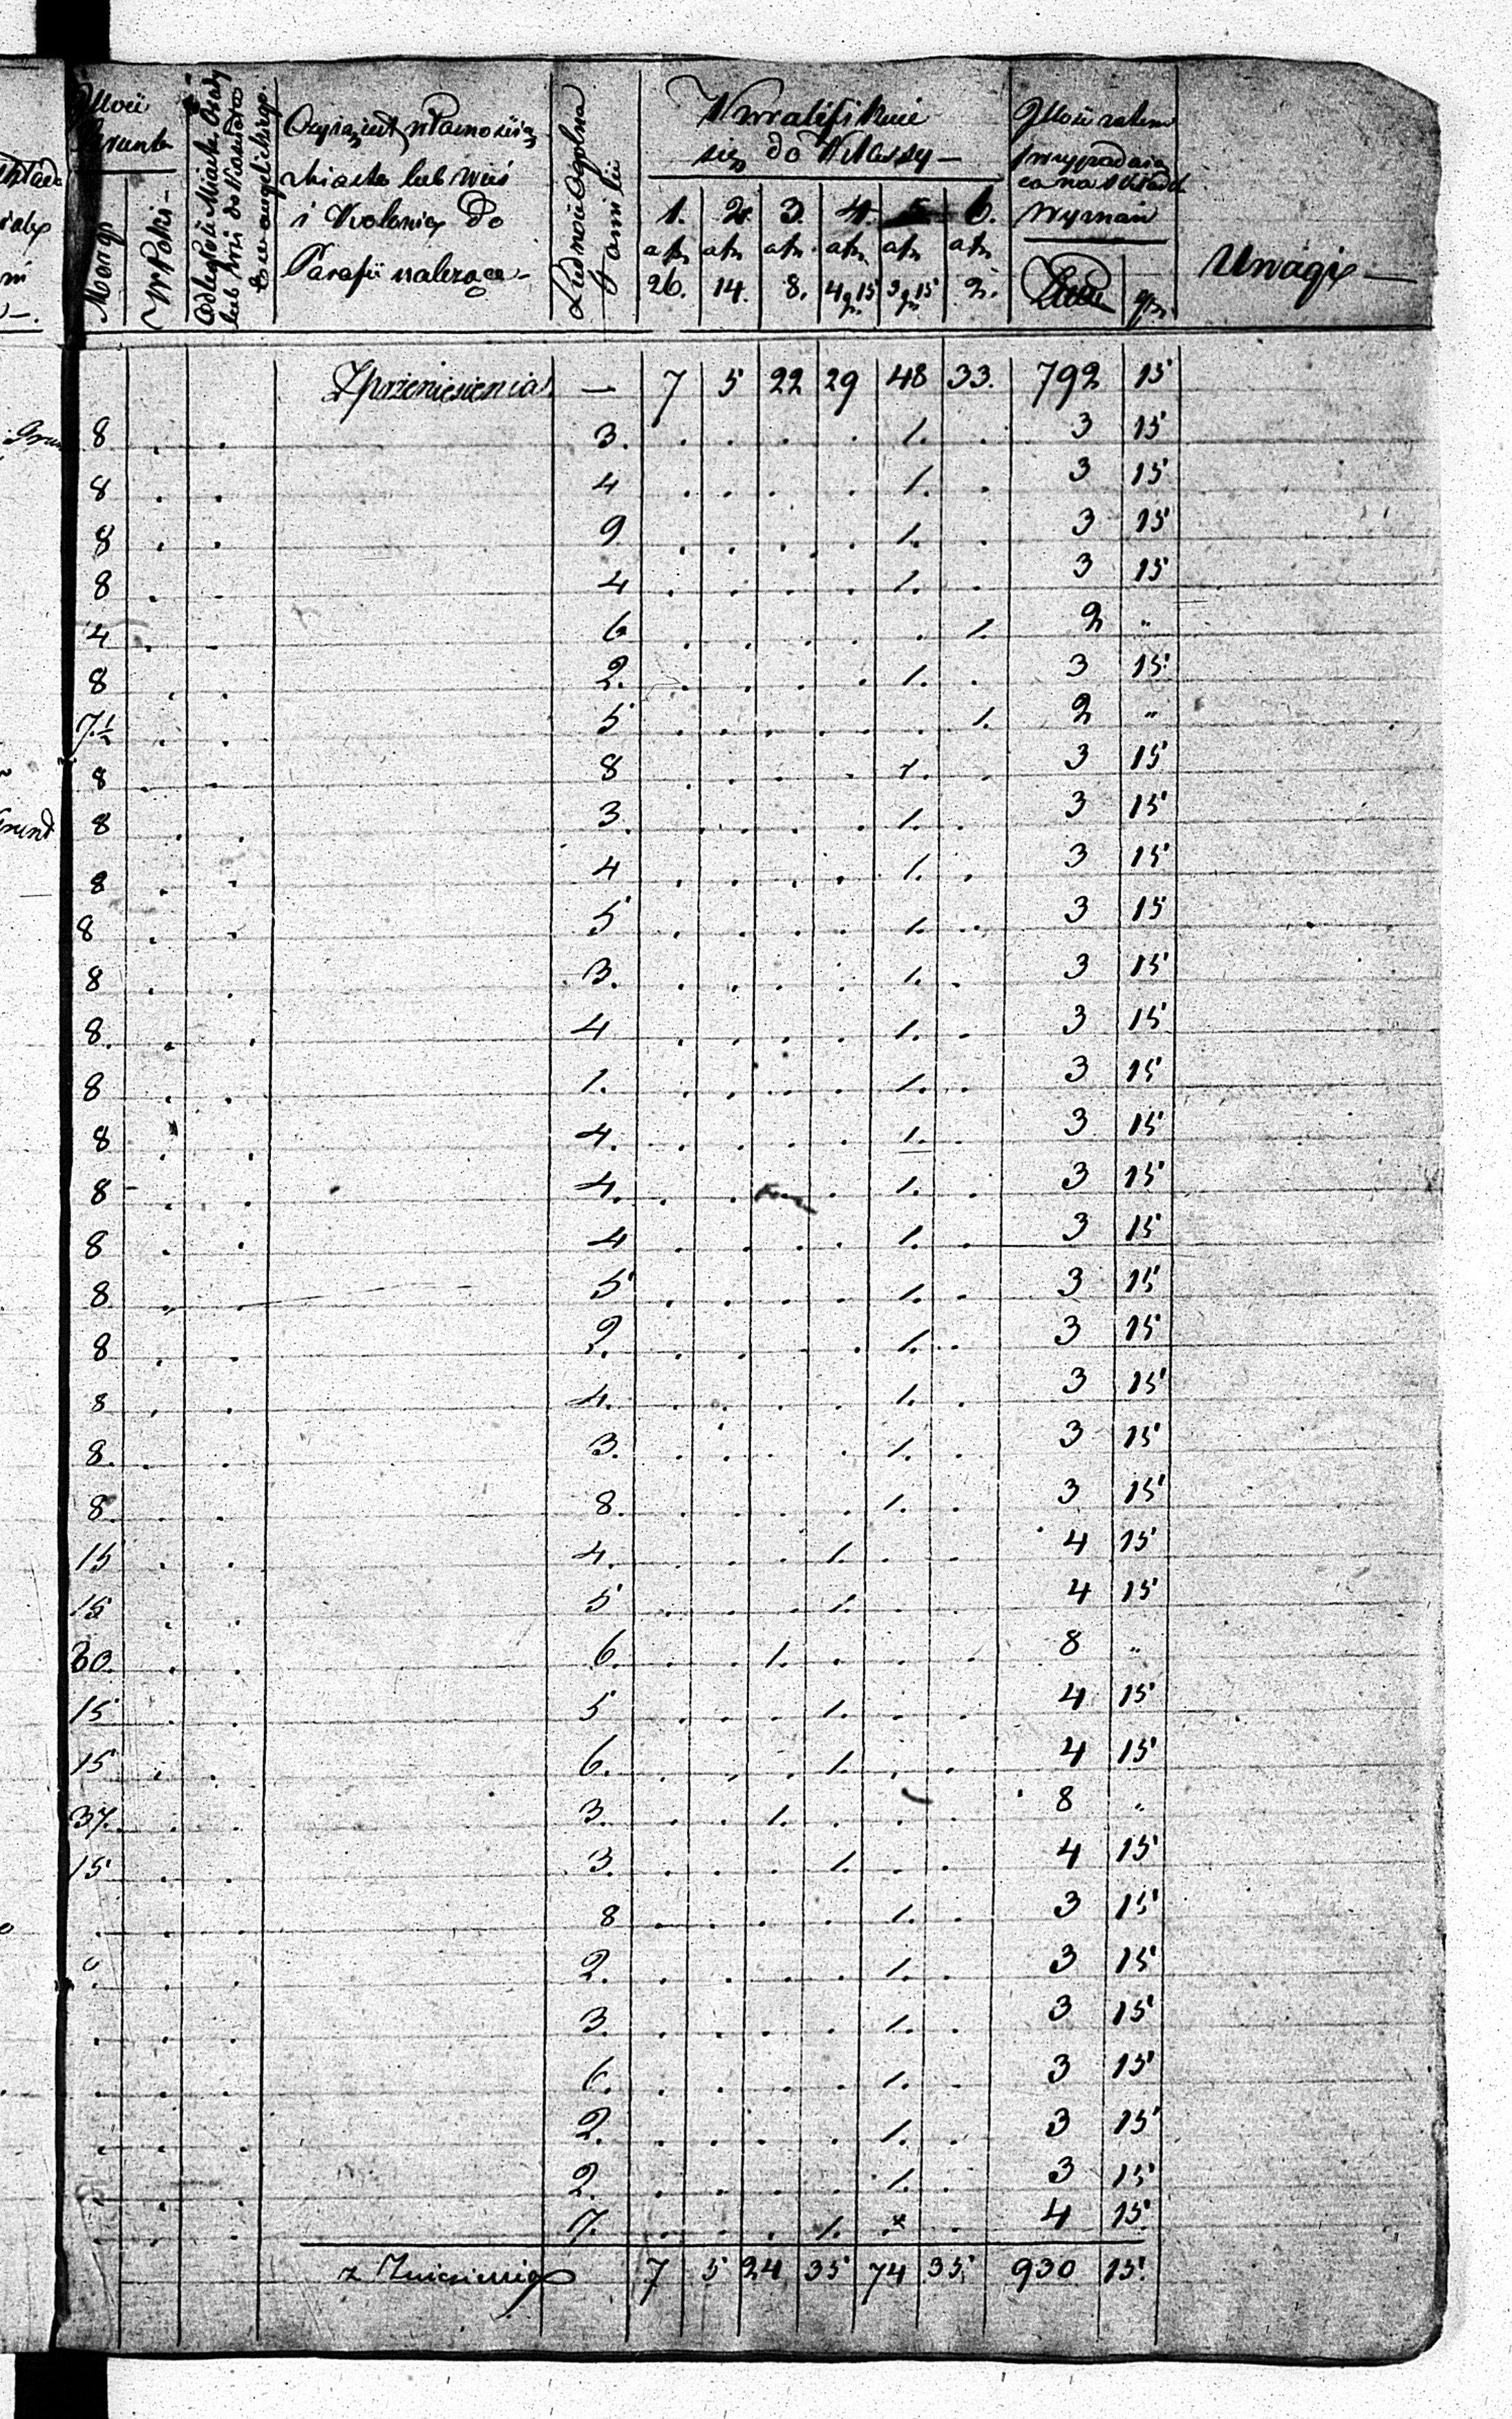 Grunta
Morgi
Czyią jest własnością
miasto lub wieś
i Kolonie do
Parafii należące
Ludność Ogólna
Familii
Kwalifikuie
się do Klassy
1. 2. 3. 4. 5. 6.
a fp. a fp. a fp. a fp. a fp. a fp.
26. 14. 8. 4 g 15 3 g 15 2.
wypada
gr.
Uwagi
Z przeniesienia — 7 5 22 29 48 33. 792 15
8 . . 3. . . . . 1. . 3 15
8 . . 4 . . . . 1. . 3 15
8 . . 9 . . . . 1. . 3 15
8 . . 4 . . . . 1. . 3 15
4 . . 6 . . . . . 1. 2 "
8 . . 2. . . . . 1. . 3 15
7 1/2 . . 5 . . . . . 1. 2 "
8 . . 8 . . . . 1. . 3 15
8 . . 3. . . . . 1. . 3 15
8 . . 4 . . . . 1. . 3 15
8 . . 5 . . . . 1. . 3 15
8 . . 3. . . . . 1. . 3 15
8. . . 4 . . . . 1. . 3 15
8 . . 1. . . . . 1. . 3 15
8 . . 4. . . . . 1. . 3 15
8 . . 4. . . . . 1. . 3 15
8 . . 4 . . . . 1. . 3 15
8 . . 5 . . . . 1. . 3 15
8 . . 2. . . . . 1. . 3 15
8 . . 4. . . . . 1. . 3 15
8. . . 3. . . . . 1. . 3 15
8. . . 8. . . . . 1. . 3 15
15 . . 4. . . . 1. . . 4 15
15 . . 5 . . . 1. . . 4 15
30. . . 6. . . 1. . . . 8 "
15 . . 5 . . . 1. . . 4 15
15 . . 6. . . . 1. . . 4 15
37. . . 3. . . 1. . . . 8 "
15 . . 3. . . . 1. . . 4 15
. . . 8 . . . . 1. . 3 15
. . . 2. . . . . 1. . 3 15
. . . 3. . . . . 1. . 3 15
. . . 6. . . . . 1. . 3 15
. . . 2. . . . . 1. . 3 15
. . . 2. . . . . 1. . 3 15
. . . 7. . . . 1. . . 4 15
z Zniesienia 7 5 24 35 74 35. 930 15.